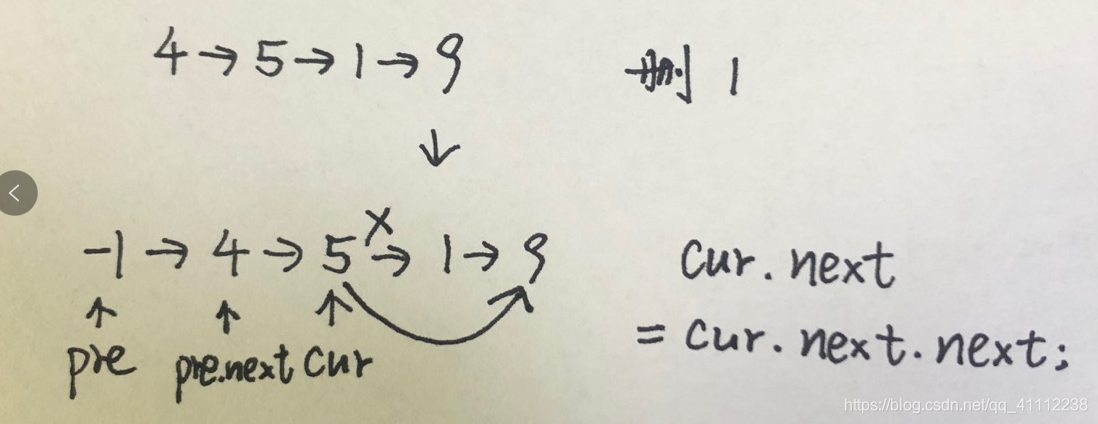 4→5→1→9 删 1
↓
-1→4→5 X→1→9
↑ ↑ ↑
pre pre.next cur
cur.next
= cur.next.next;
https://blog.csdn.net/qq_41112238